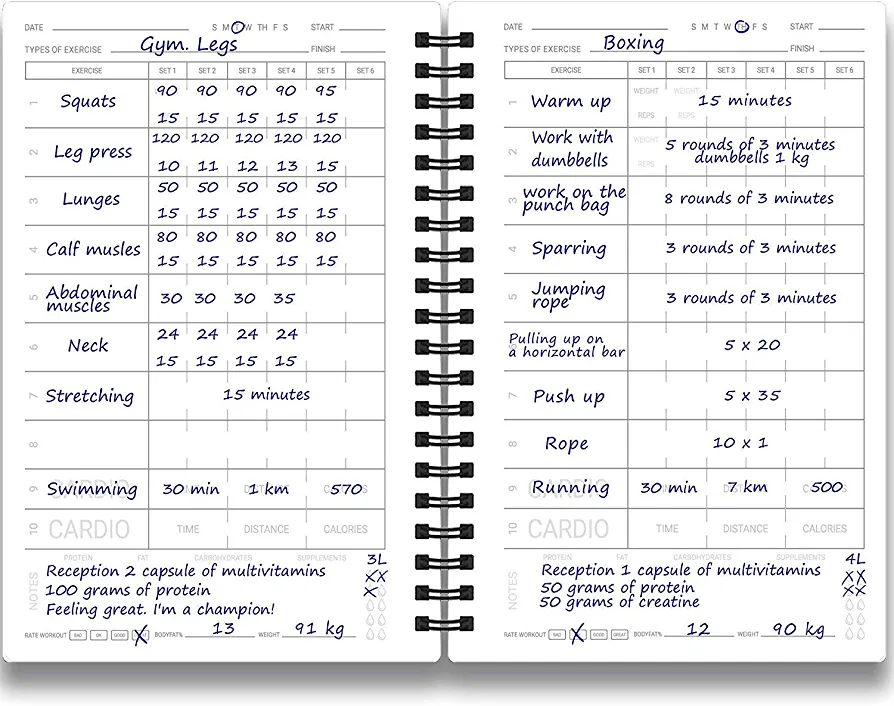 DATE S M T W TH F S START
TYPES OF EXERCISE Gym. Legs FINISH
EXERCISE SET 1 SET 2 SET 3 SET 4 SET 5 SET 6
1 Squats 90 90 90 90 95
15 15 15 15 15
2 Leg press 120 120 120 120 120
10 11 12 13 15
3 Lunges 50 50 50 50 50
15 15 15 15 15
4 Calf musles 80 80 80 80 80
15 15 15 15 15
5 Abdominal
muscles 30 30 30 35
6 Neck 24 24 24 24
15 15 15 15
7 Stretching 15 minutes
8
9 Swimming 30 min 1 km 570
10 CARDIO TIME DISTANCE CALORIES
PROTEIN FAT CARBOHYDRATES SUPPLEMENTS 3L
NOTES
Reception 2 capsule of multivitamins XX
100 grams of protein X
Feeling great. I'm a champion!
RATE WORKOUT BAD OK GOOD X BODYFAT% 13 WEIGHT 91 kg
DATE S M T W TH F S START
TYPES OF EXERCISE Boxing FINISH
EXERCISE SET 1 SET 2 SET 3 SET 4 SET 5 SET 6
1 Warm up WEIGHT WEIGHT 15 minutes
REPS REPS
2 Work with
dumbbells WEIGHT 5 rounds of 3 minutes
REPS dumbbells 1 kg
3 work on the
punch bag 8 rounds of 3 minutes
4 Sparring 3 rounds of 3 minutes
5 Jumping
rope 3 rounds of 3 minutes
Pulling up on
a horizontal bar 5 x 20
7 Push up 5 x 35
8 Rope 10 x 1
9 Running 30 min 7 km 500
10 CARDIO TIME DISTANCE CALORIES
PROTEIN FAT CARBOHYDRATES SUPPLEMENTS 4L
NOTES
Reception 1 capsule of multivitamins XX
50 grams of protein XX
50 grams of creatine
RATE WORKOUT BAD X GOOD GREAT BODYFAT% 12 WEIGHT 90 kg